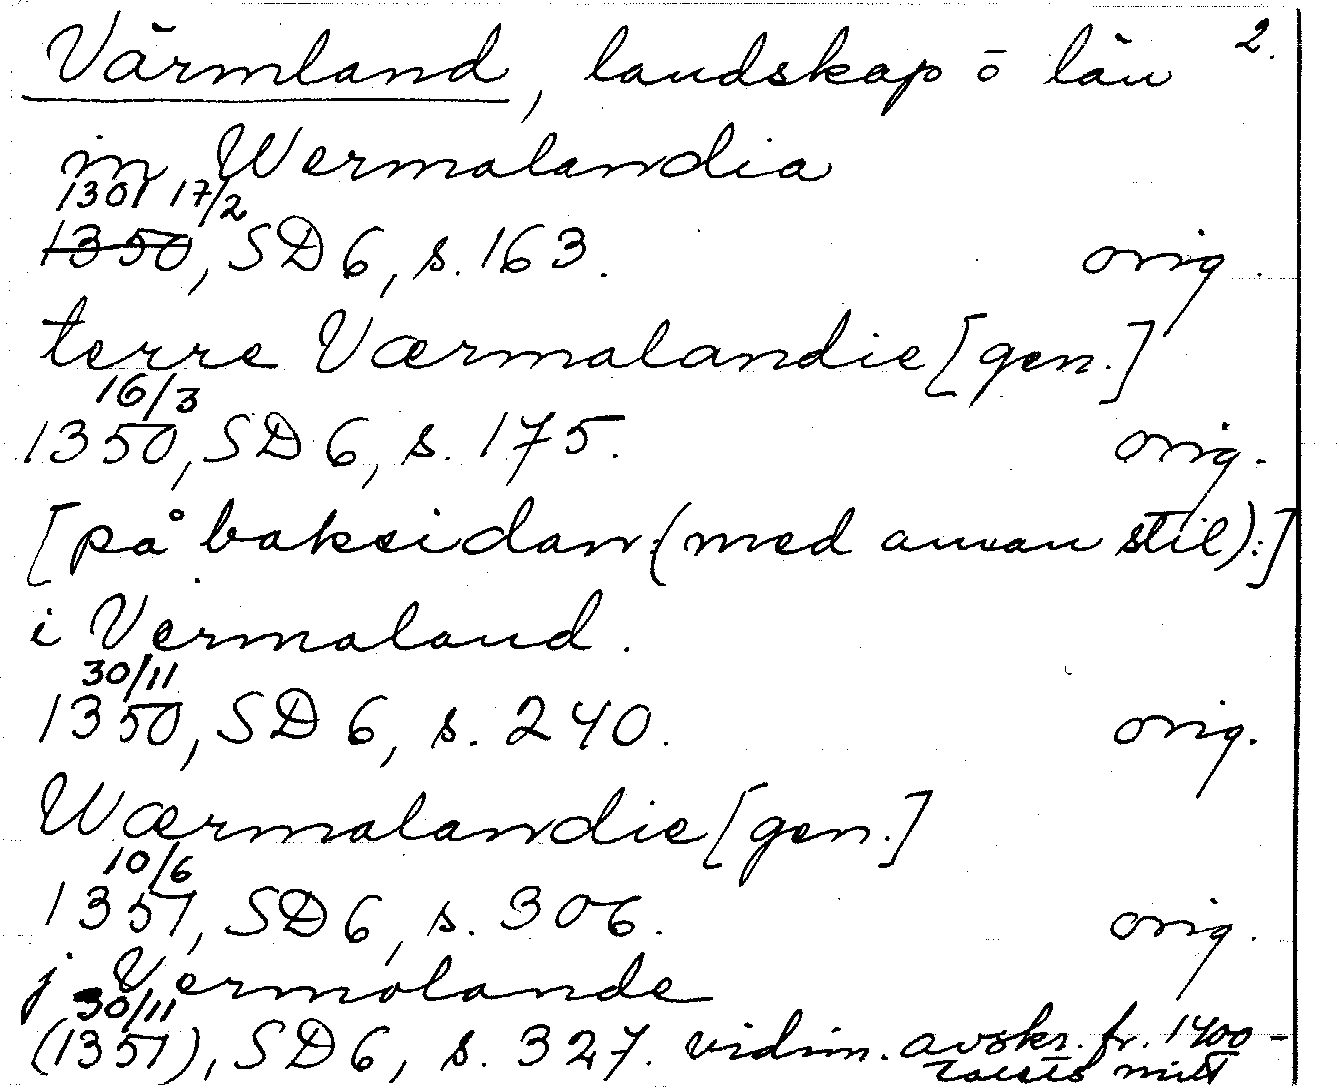 Värmland, landskap ō län 2.
in Wermalandia
1301 17/2
1350, SD 6, s. 163. orig.
terre Værmalandie [gen.]
16/3
1350, SD 6, s. 175. orig.
[på baksidan (med annan stil):]
i Vermaland.
30/11
1350, SD 6, s. 240. orig.
Wærmalandie [gen.]
10/6
1351, SD 6, s. 306. orig.
j Vermolande
30/11
(1351), SD 6, s. 327. vidim. avskr. fr. 1400-
talets mitt